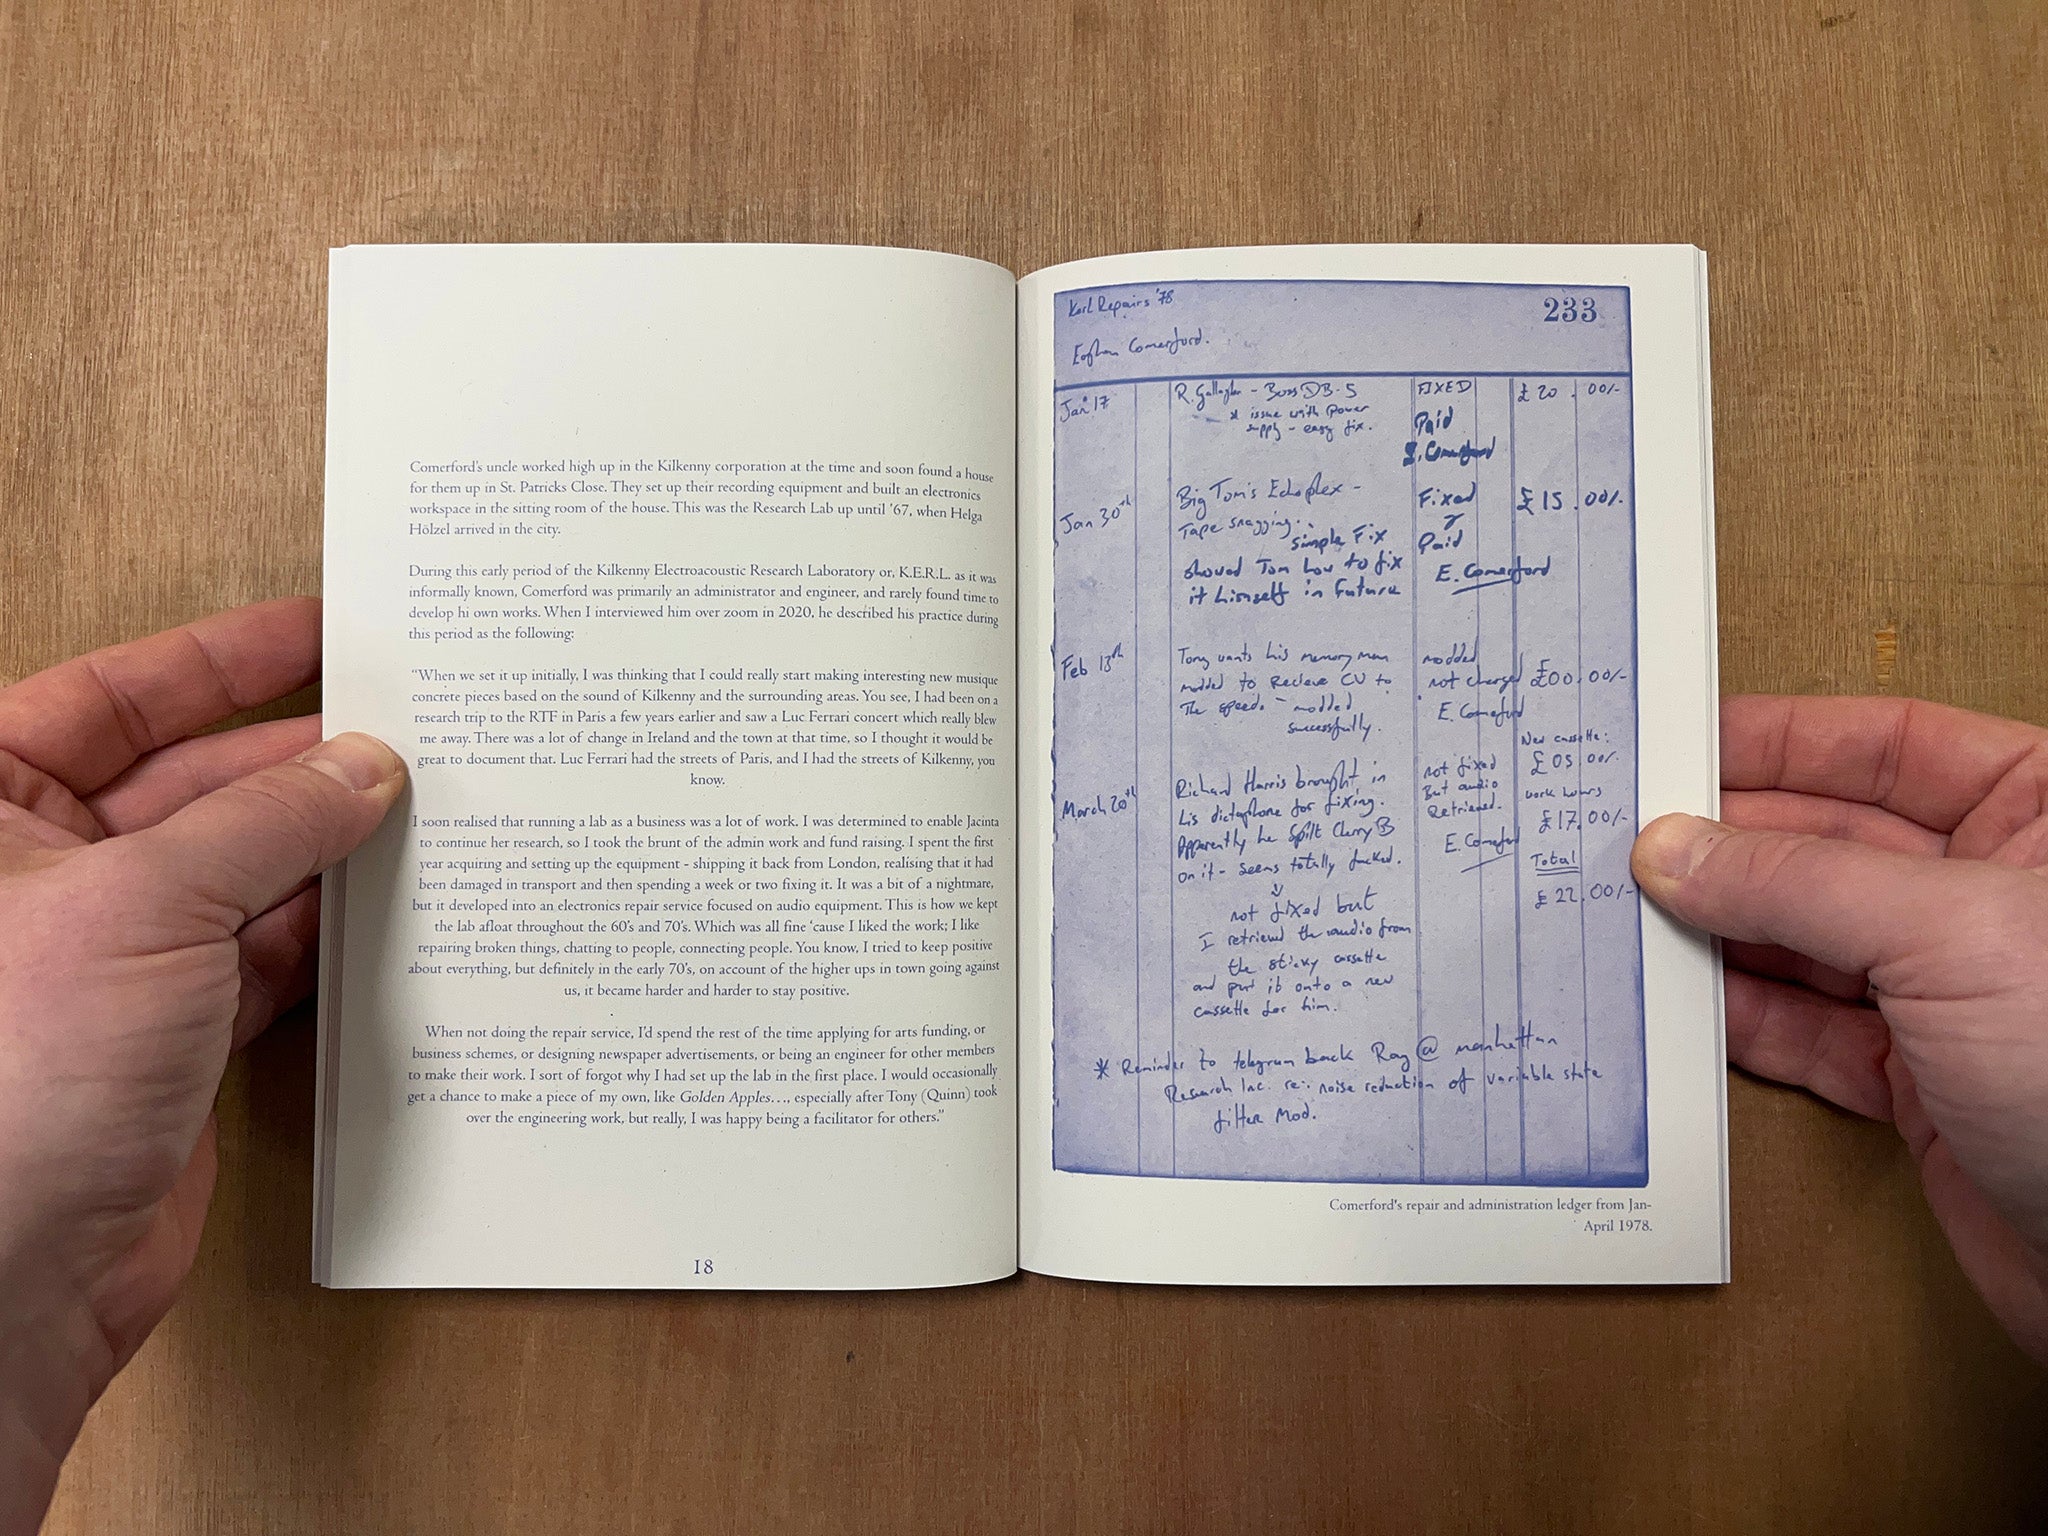 Comerford's uncle worked high up in the Kilkenny corporation at the time and soon found a house
for them up in St. Patricks Close. They set up their recording equipment and built an electronics
workspace in the sitting room of the house. This was the Research Lab up until '67, when Helga
Hölzel arrived in the city.
During this early period of the Kilkenny Electroacoustic Research Laboratory or, K.E.R.L. as it was
informally known, Comerford was primarily an administrator and engineer, and rarely found time to
develop hi own works. When I interviewed him over zoom in 2020, he described his practice during
this period as the following:
“When we set it up initially, I was thinking that I could really start making interesting new musique
concrete pieces based on the sound of Kilkenny and the surrounding areas. You see, I had been on a
research trip to the RTF in Paris a few years earlier and saw a Luc Ferrari concert which really blew
me away. There was a lot of change in Ireland and the town at that time, so I thought it would be
great to document that. Luc Ferrari had the streets of Paris, and I had the streets of Kilkenny, you
know.
I soon realised that running a lab as a business was a lot of work. I was determined to enable Jacinta
to continue her research, so I took the brunt of the admin work and fund raising. I spent the first
year acquiring and setting up the equipment - shipping it back from London, realising that it had
been damaged in transport and then spending a week or two fixing it. It was a bit of a nightmare,
but it developed into an electronics repair service focused on audio equipment. This is how we kept
the lab afloat throughout the 60's and 70's. Which was all fine ‘cause I liked the work; I like
repairing broken things, chatting to people, connecting people. You know, I tried to keep positive
about everything, but definitely in the early 70's, on account of the higher ups in town going against
us, it became harder and harder to stay positive.
When not doing the repair service, I'd spend the rest of the time applying for arts funding, or
business schemes, or designing newspaper advertisements, or being an engineer for other members
to make their work. I sort of forgot why I had set up the lab in the first place. I would occasionally
get a chance to make a piece of my own, like Golden Apples…, especially after Tony (Quinn) took
over the engineering work, but really, I was happy being a facilitator for others.”
18
Kerl Repairs '78
233
Eoghan Comerford.
Jan 17
R. Gallagher - Boss DB-5
* issue with power
supply - easy fix.
FIXED
Paid
E. Comerford
£20.00/-
Jan 30th
Big Tom's Echoplex -
Tape snagging.
simple Fix
showed Tom how to fix
it himself in future
Fixed
Paid
E. Comerford
£15.00/-
Feb 13th
Tony wants his memory man
modded to recieve CV to
The speed. - modded
successfully.
modded
not charged
E. Comerford
£00.00/-
March 20th
Richard Harris brought in
his dictaphone for fixing.
Apparently he spilt Cherry B
on it - seems totally fucked.
↓
not fixed but
I retrieved the audio from
the sticky cassette
and put it onto a new
cassette for him.
not fixed
But audio
Retrieved.
E. Comerford
New cassette:
£05.00/-
work hours
£17.00/-
Total
£22.00/-
* Reminder to telegram back Ray @ manhattan
Research Inc. re: noise reduction of variable state
filter mod.
Comerford's repair and administration ledger from Jan-
April 1978.